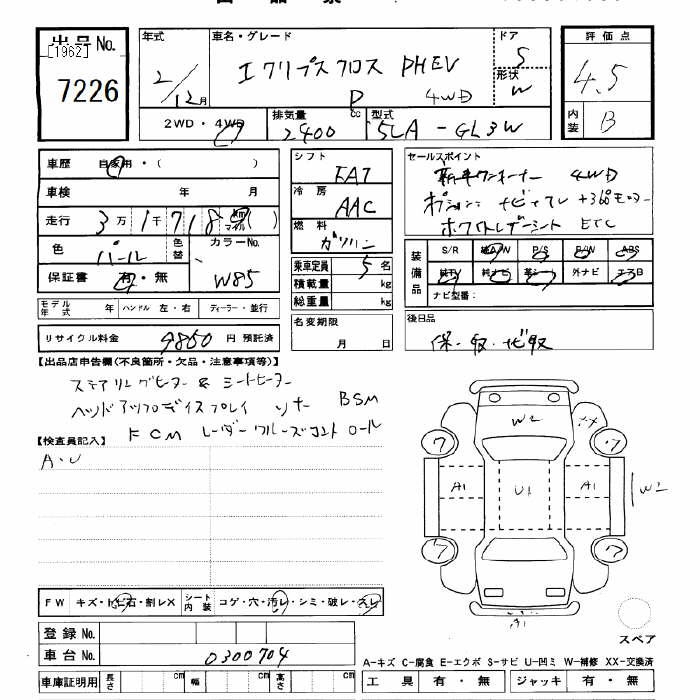 出品No. [1962] 7226
年式 2/12月
車名・グレード エクリプスクロス PHEV P 4WD
ドア 5
形状 W
評価点 4.5
内装 B
2WD・4WD
排気量 2400 cc
型式 5LA-GL3W
車歴 自家用・( )
車検 年 月
走行 3万1千718 km マイル
色 パール 色替 カラーNo. W85
保証書 有・無
モデル年式 年 ハンドル 左・右 ディーラー・並行
リサイクル料金 9860 円 預託済
シフト FAT
冷房 AAC
燃料 ガソリン
乗車定員 5 名
積載量 kg
総重量 kg
名変期限 月 日
セールスポイント
新車ワンオーナー 4WD
オプション ナビTV +360モニター
ホワイトレザーシート ETC
装備品 S/R 純A/W P/S P/W ABS
純TV 純ナビ 革シート 外ナビ エアB
ナビ型番:
後日品
保・取・ナビ取
【出品店申告欄(不良箇所・欠品・注意事項等)】
ステアリングヒーター & シートヒーター
ヘッドアップディスプレイ ソナー BSM
FCM レーダークルーズコントロール
【検査員記入】
A・U
W2
ワ ワ
A1 U1 A1 W2
ワ ワ
FW キズ・トビ石・割レX シート内装 コゲ・穴・汚レ・シミ・破レ・スレ
登録No.
車台No. 0300704
スペア
A-キズ C-腐食 E-エクボ S-サビ U-凹ミ W-補修 XX-交換済
車庫証明用 長さ cm 幅 cm 高さ cm
工具 有・無 ジャッキ 有・無